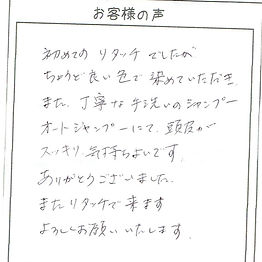 お客様の声
初めてのリタッチでしたが
ちょうど良い色で染めていただき
また、丁寧な手洗いのシャンプー
オートシャンプーにて、頭皮が
スッキリ気持ちよいです。
ありがとうございました。
またリタッチで来ます
よろしくお願いいたします。